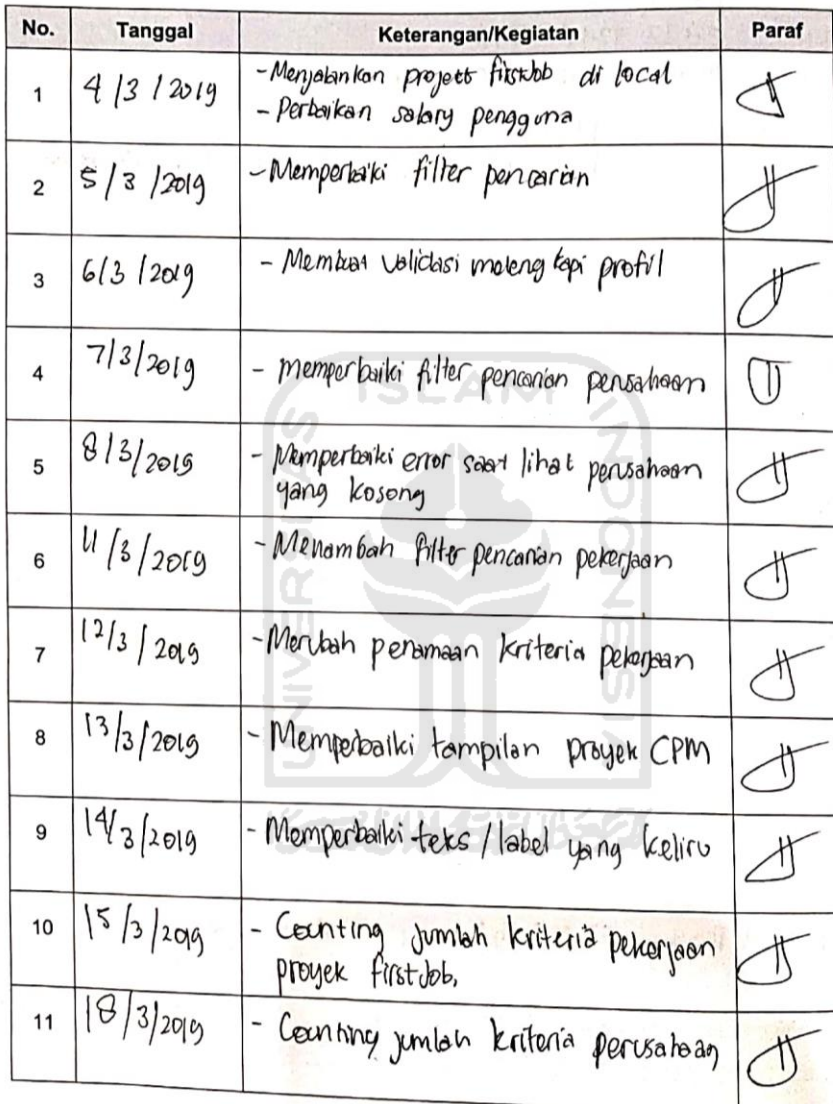 No. Tanggal Keterangan/Kegiatan Paraf
1 4/3/2019 - Menjalankan project firstJob di local
- Perbaikan salary pengguna
2 5/3/2019 - Memperbaiki filter pencarian
3 6/3/2019 - Membuat validasi melengkapi profil
4 7/3/2019 - Memperbaiki filter pencarian perusahaan
5 8/3/2019 - Memperbaiki error saat lihat perusahaan
yang kosong
6 11/3/2019 - Menambah filter pencarian pekerjaan
7 12/3/2019 - Merubah penamaan kriteria pekerjaan
8 13/3/2019 - Memperbaiki tampilan proyek CPM
9 14/3/2019 - Memperbaiki teks/label yang keliru
10 15/3/2019 - Counting jumlah kriteria pekerjaan
proyek firstJob.
11 18/3/2019 - Counting jumlah kriteria perusahaan
UNIVERSITAS ISLAM INDONESIA